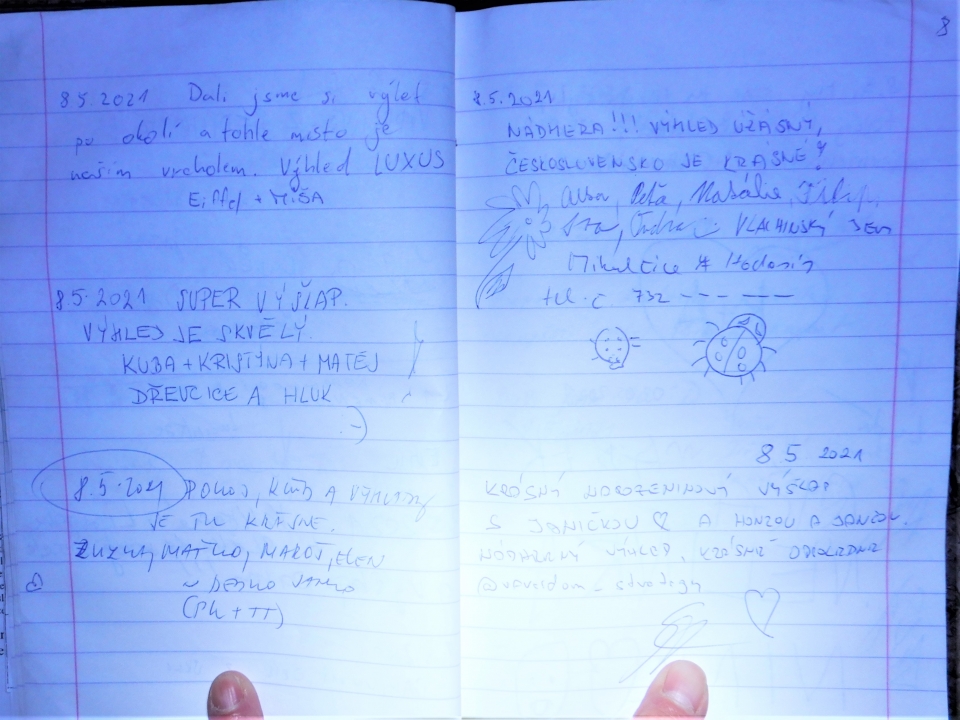 8.5.2021 Dali jsme si výlet
po okolí a tohle místo je
naším vrcholem. Výhled LUXUS
Eiffel + MíŠA
8.5.2021 SUPER VÝŠLAP.
VÝHLED JE SKVĚLÝ
KUBA + KRISTÝNA + MATĚJ
DŘEVČICE A HLUK
:-)
8.5.2021 POKOJ, KĽUD A VÝHĽADY
JE TU KRÁSNE.
ZUZKA, MAŤKO, MAROŠ, ELEN
(PK + TT)
8
8.5.2021
NÁDHERA!!! VÝHLED ÚŽASNÝ,
ČESKOSLOVENSKO JE KRÁSNÉ!
Péťa, Natálie, Filip,
VLACHINSKÝ
Mikulčice A Hodonín
tel. č. 732 - - - - - -
8 5 2021
KRÁSNÝ NAROZENINOVÝ VÝŠLAP
S JANIČKOU ♡ A HONZOU A
NÁDHERNÝ VÝHLED, KRÁSNÉ